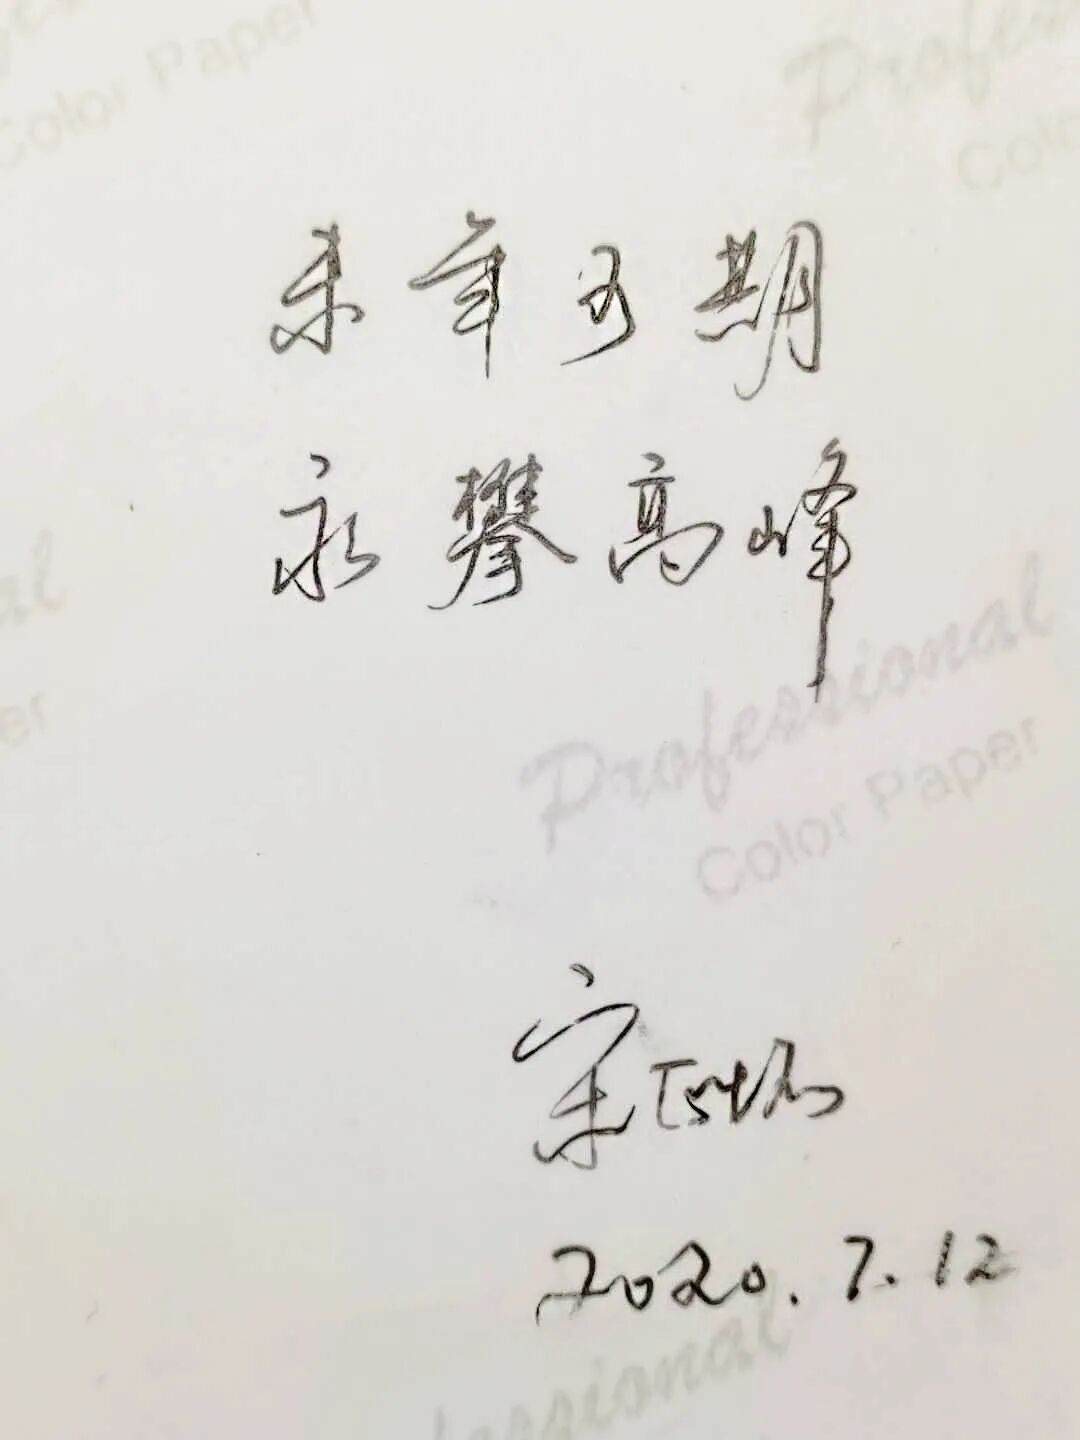 Color Paper
Professional
Colo
未年可期
永攀高峰
al
Professional
er
Color Paper
宋
2020.7.12
essional